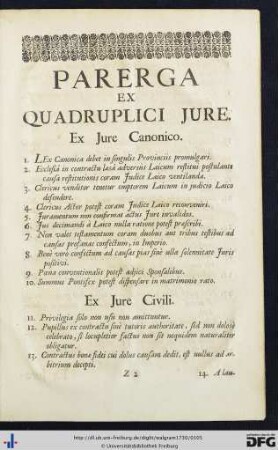 PARERGA
EX
QUADRUPLICI JURE.
Ex Jure Canonico.
1. LEx Canonica debet in singulis Provinciis promulgari.
2. Exclusâ in contractu læsâ adversus Laicum restitui postulante
causa restitutionis coram Judice Laico ventilanda.
3. Clericus venditor tenetur emptorem Laicum in judicio Laico
defendere.
4. Clericus Actor potest coram Judice Laico reconveniri.
5. Juramentum non confirmat actus Jure invalidos.
6. Jus decimandi à Laico nulla ratione potest præscribi.
7. Non valet testamentum coram duobus aut tribus testibus ad
causas profanas confectum, in Imperio.
8. Benè verò confectum ad causas pias sinè ulla solennitate Juris
positivi.
9. Pœna conventionalis potest adjici Sponsalibus.
10. Summus Pontifex potest dispensare in matrimonio rato.
Ex Jure Civili.
11. Privilegia solo non usu non amittuntur.
12. Pupillus ex contractu sinè tutoris authoritate, sed non dolosè
celebrato, si locupletior factus non sit nequidem naturaliter
obligatur.
13. Contractus bonæ fidei cui dolus causam dedit, est nullus ad ar-
bitrium decepti.
Z 2
14. A lau-
http://dl.ub.uni-freiburg.de/diglit/walgram1730/0105
© Universitätsbibliothek Freiburg
gefördert durch die
DFG